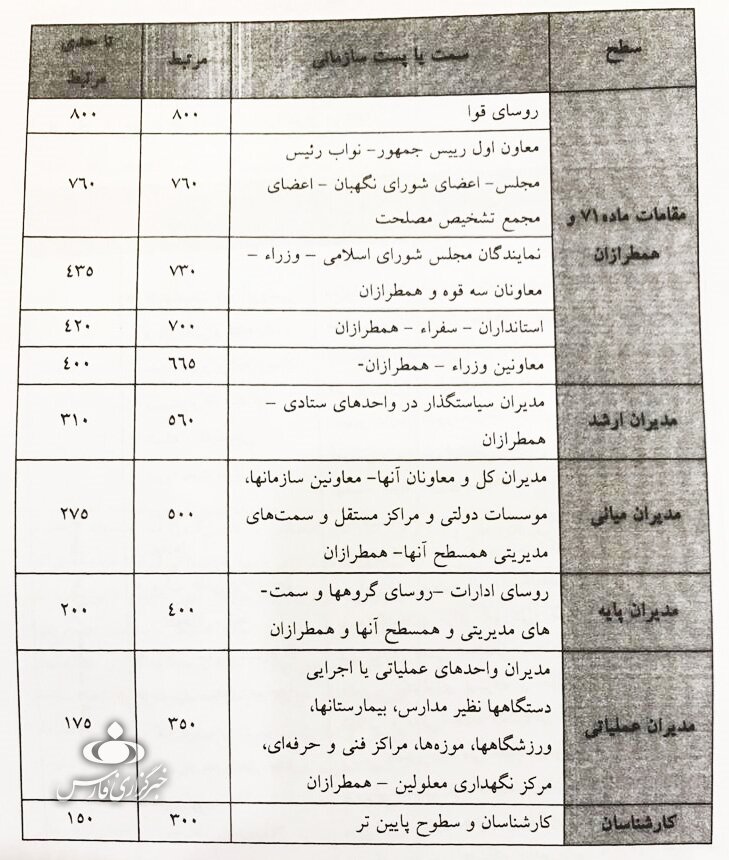 سطح
سمت یا پست سازمانی
مرتبط
تا حدی
مرتبط
مقامات ماده ۷۱ و
همطرازان
روسای قوا
۸۰۰
۸۰۰
معاون اول رییس جمهور– نواب رئیس
مجلس– اعضای شورای نگهبان – اعضای
مجمع تشخیص مصلحت
۷٦۰
۷٦۰
نمایندگان مجلس شورای اسلامی – وزراء –
معاونان سه قوه و همطرازان
۷۳۰
٤۳۵
استانداران – سفراء – همطرازان
۷۰۰
٤۲۰
معاونین وزراء – همطرازان-
٦٦۵
٤۰۰
مدیران ارشد
مدیران سیاستگذار در واحدهای ستادی –
همطرازان
۵٦۰
۳۱۰
مدیران میانی
مدیران کل و معاونان آنها– معاونین سازمانها،
موسسات دولتی و مراکز مستقل و سمت‌های
مدیریتی همسطح آنها– همطرازان
۵۰۰
۲۷۵
مدیران پایه
روسای ادارات –روسای گروهها و سمت-
های مدیریتی و همسطح آنها و همطرازان
٤۰۰
۲۰۰
مدیران عملیاتی
مدیران واحدهای عملیاتی یا اجرایی
دستگاهها نظیر مدارس، بیمارستانها،
ورزشگاهها، موزه‌ها، مراکز فنی و حرفه‌ای،
مرکز نگهداری معلولین – همطرازان
۳۵۰
۱۷۵
کارشناسان
کارشناسان و سطوح پایین تر
۳۰۰
۱۵۰
خبرگزاری فارس